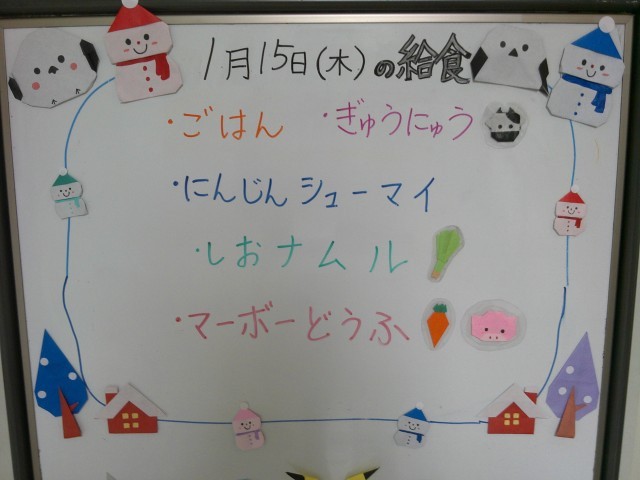 1月15日(木)の給食
・ごはん ・ぎゅうにゅう
・にんじんシューマイ
・しおナムル
・マーボーどうふ